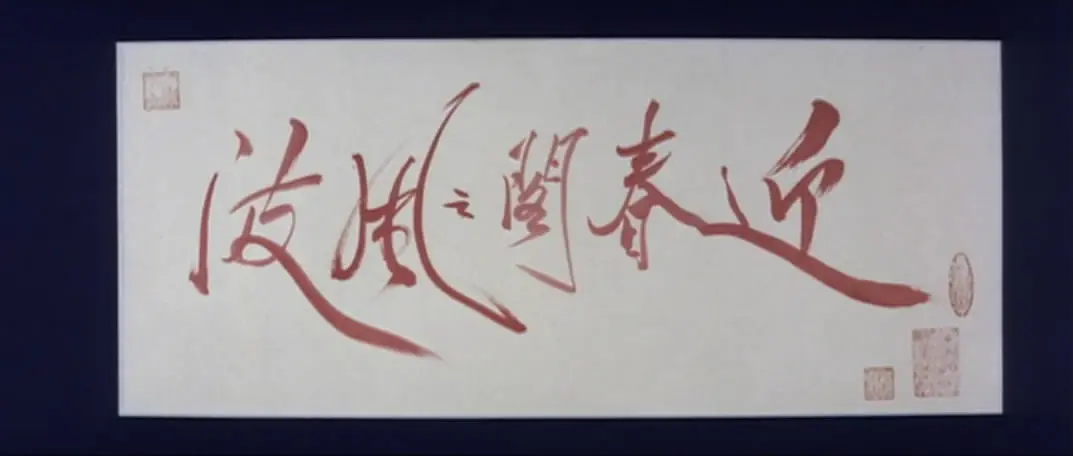 迎春閣之風波